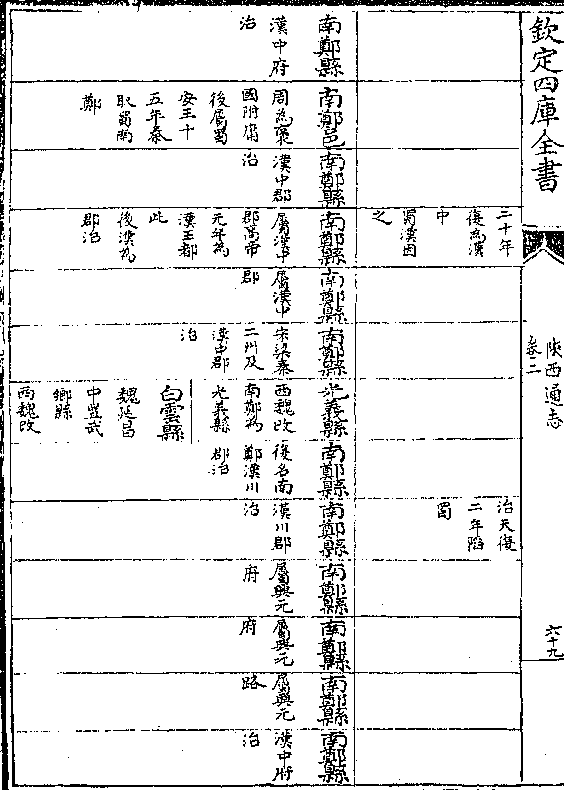 欽定四庫全書
陜西通志
卷二
六十九
二十年
復為漢
中
蜀漢因
之
治天復
二年陷
蜀
南鄭縣
漢中府
治
南鄭邑
周為褒
國附庸
後屬蜀
安王十
五年秦
取蜀南
鄭
南鄭縣
漢中郡
治
南鄭縣
屬漢中
郡高帝
元年為
漢王都
此
後漢為
郡治
南鄭縣
屬漢中
郡
南鄭縣
宋梁秦
二州及
漢中郡
治
光義縣
西魏改
南鄭為
光義縣
白雲縣
魏延昌
中置武
鄉縣
西魏改
南鄭縣
後名南
鄭漢川
郡治
南鄭縣
漢川郡
治
南鄭縣
屬興元
府
南鄭縣
屬興元
府
南鄭縣
屬興元
路
南鄭縣
漢中府
治